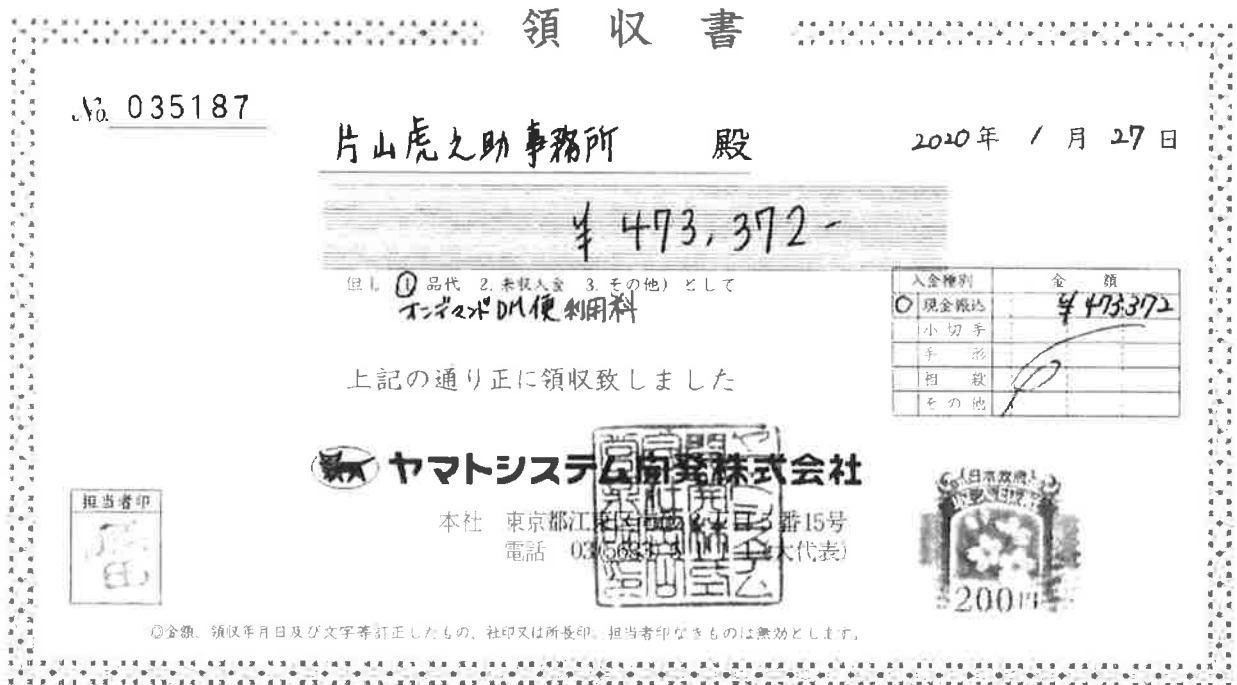 領収書
No. 035187
片山虎之助事務所 殿
2020年 1月 27日
¥ 473,372-
但し ① 品代 2. 未収入金 3. その他) として
オンデマンドDM便 利用料
入金種別 金額
○ 現金振込 ¥473,372
小切手
手形
相殺
その他
上記の通り正に領収致しました
ヤマトシステム開発株式会社
担当者印
本社 東京都江東区 番15号
電話 03(5683) (大代表)
日本政府
200円
◎金額、領収年月日及び文字等訂正したもの、社印又は所長印、担当者印なきものは無効とします。